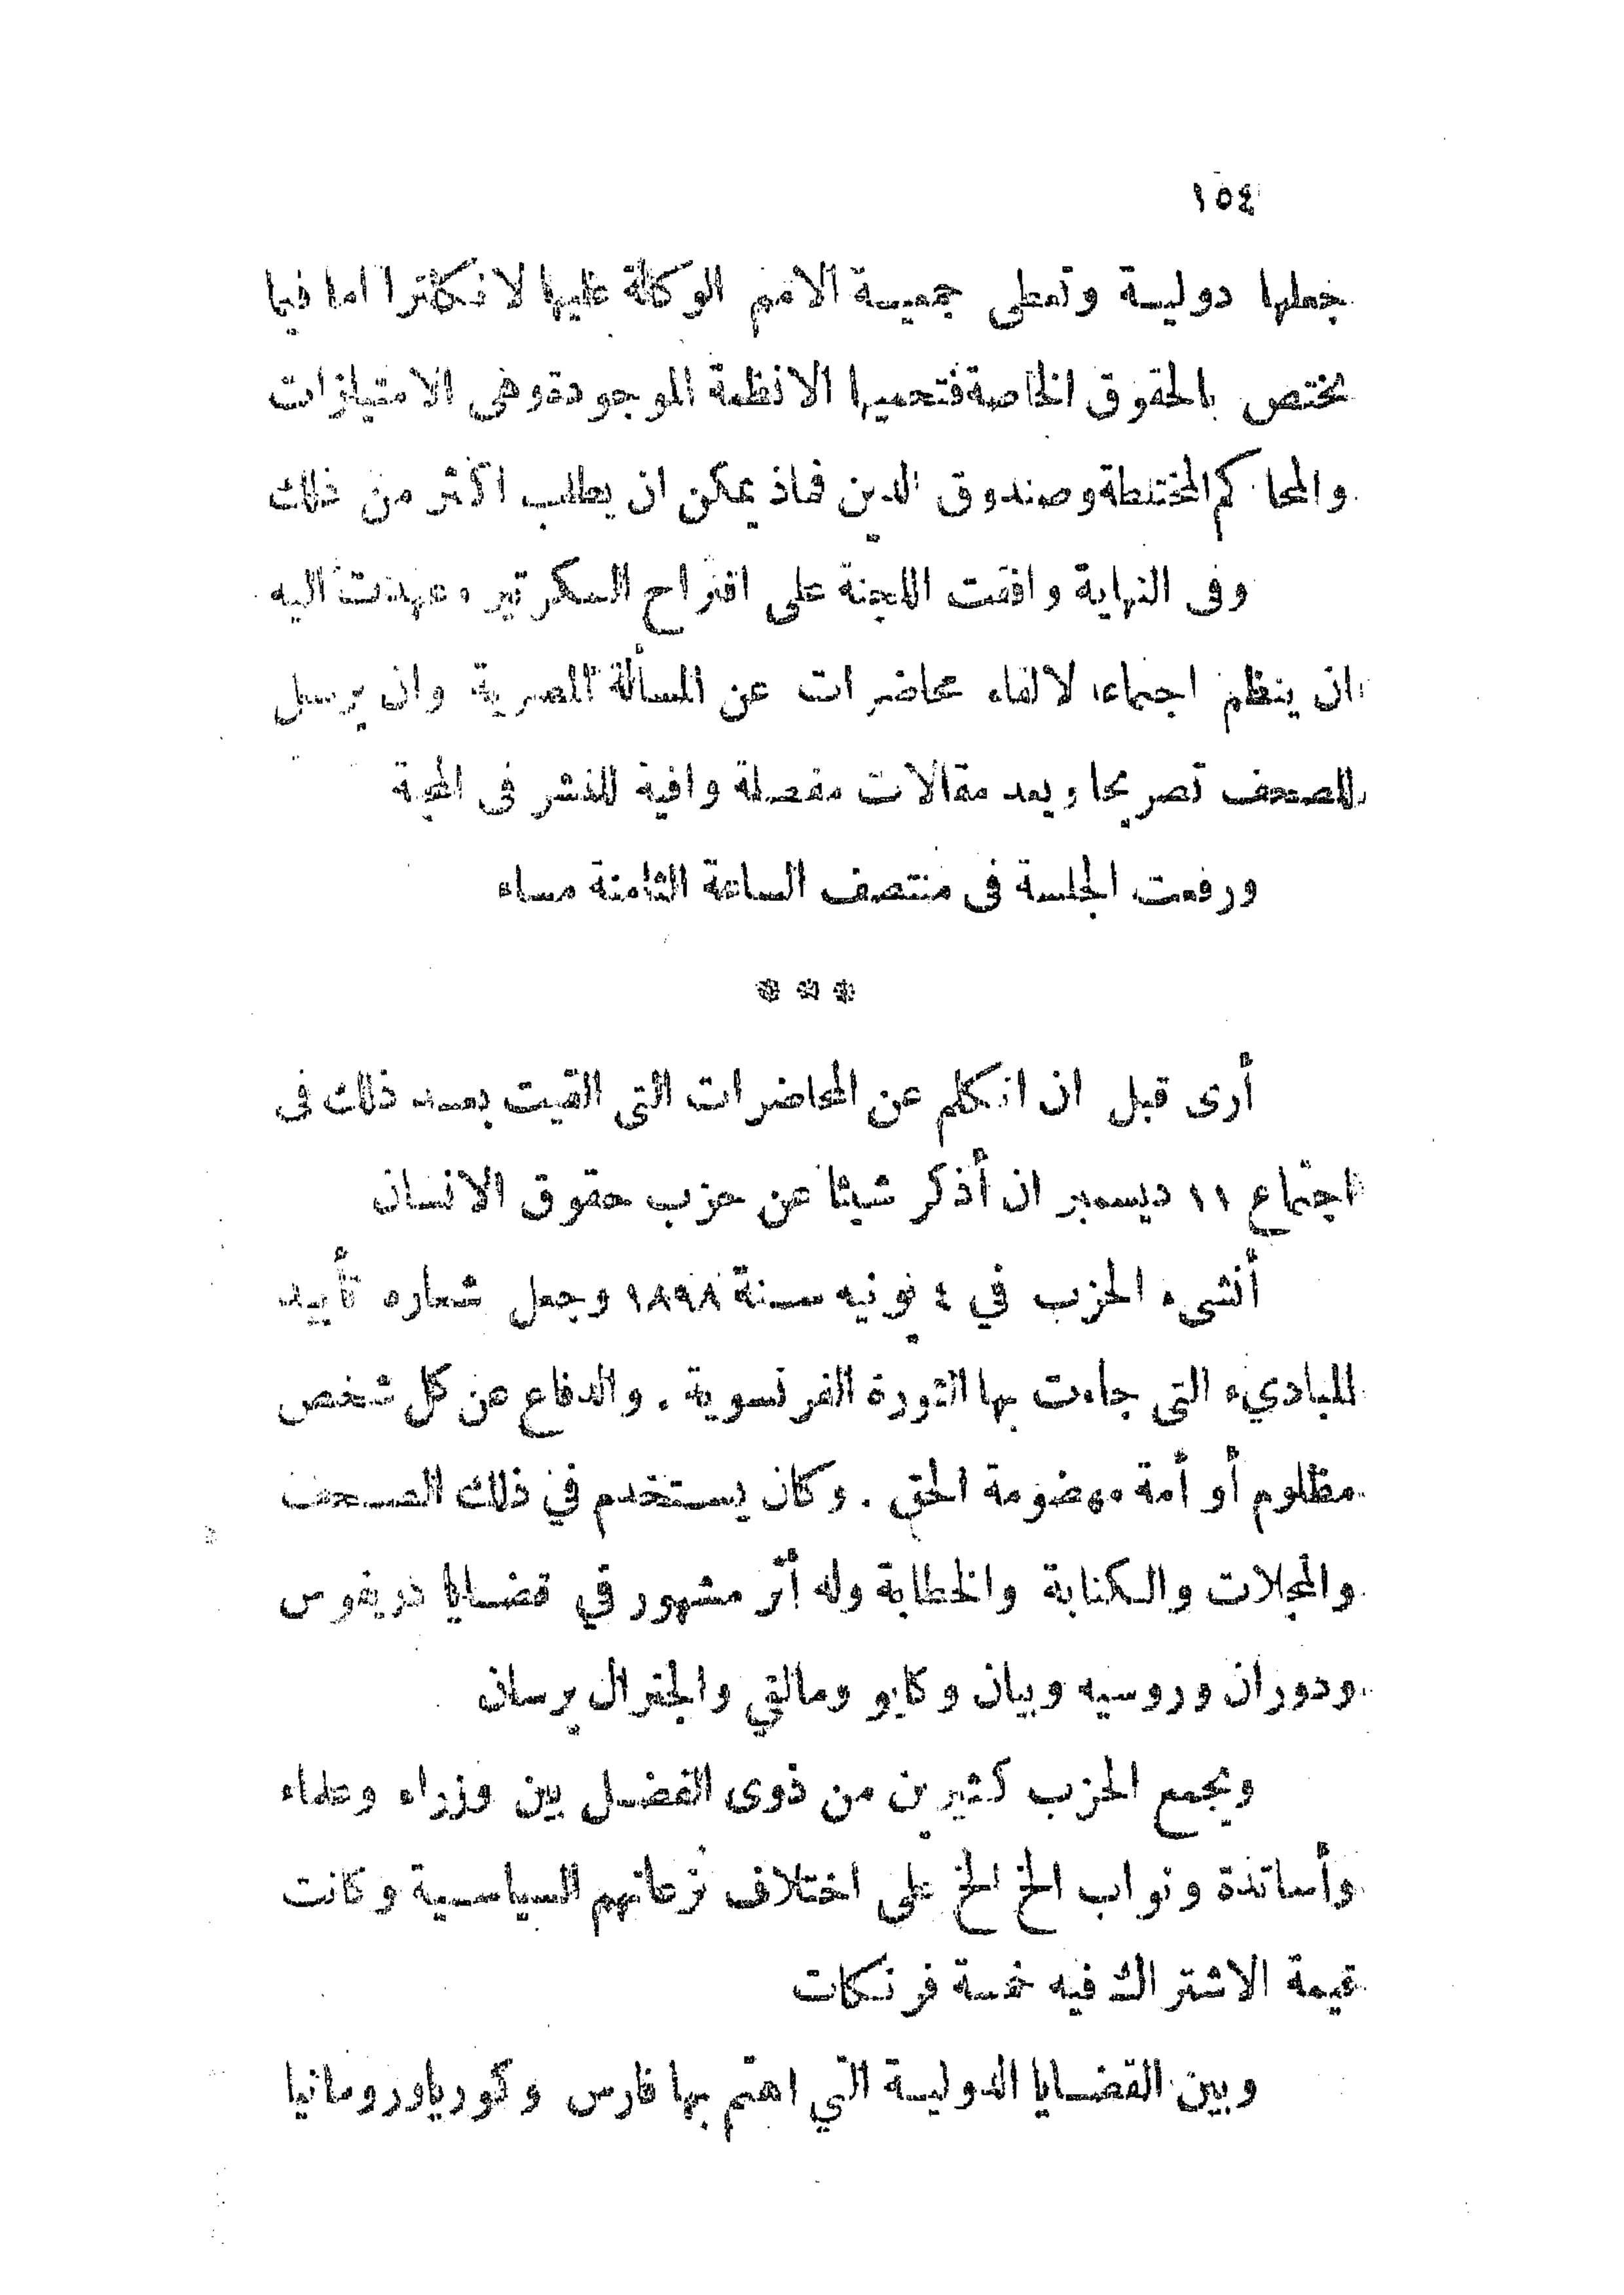 ١٥٤
جعلها دولية وتعطى جمعية الامم الوكالة عليها لانكلترا اما فيما
يختص بالحقوق الخاصة فتحميها الانظمة الموجودة وهى الامتيازات
والمحاكم المختلطة وصندوق الدين فماذ يمكن ان يطلب اكثر من ذلك
وفى النهاية وافقت اللجنة على اقتراح السكرتير وعهدت اليه
ان ينظم اجتماعا لالقاء محاضرات عن المسألة المصرية وان يرسل
للصحف تصريحا ويعد مقالات مفصلة وافية للنشر فى المجلة
ورفعت الجلسة فى منتصف الساعة الثامنة مساء
* * *
أرى قبل ان اتكلم عن المحاضرات التى القيت بعد ذلك فى
اجتماع ١١ ديسمبر ان أذكر شيئا عن حزب حقوق الانسان
أنشىء الحزب في ٤ يونيه سنة ١٨٩٨ وجعل شعاره تأييد
المبادىء التى جاءت بها الثورة الفرنسوية . والدفاع عن كل شخص
مظلوم أو أمة مهضومة الحق . وكان يستخدم في ذلك الصحف
والمجلات والكتابة والخطابة وله أثر مشهور في قضايا دريفوس
ودوران وروسيه وبيان وكايو ومالقي والجنرال برسان
ويجمع الحزب كثيرين من ذوى الفضل بين وزراء وعلماء
وأساتذة ونواب الخ الخ على اختلاف نزعاتهم السياسية وكانت
قيمة الاشتراك فيه خمسة فرنكات
وبين القضايا الدولية التي اهتم بها فارس وكوريا ورومانيا